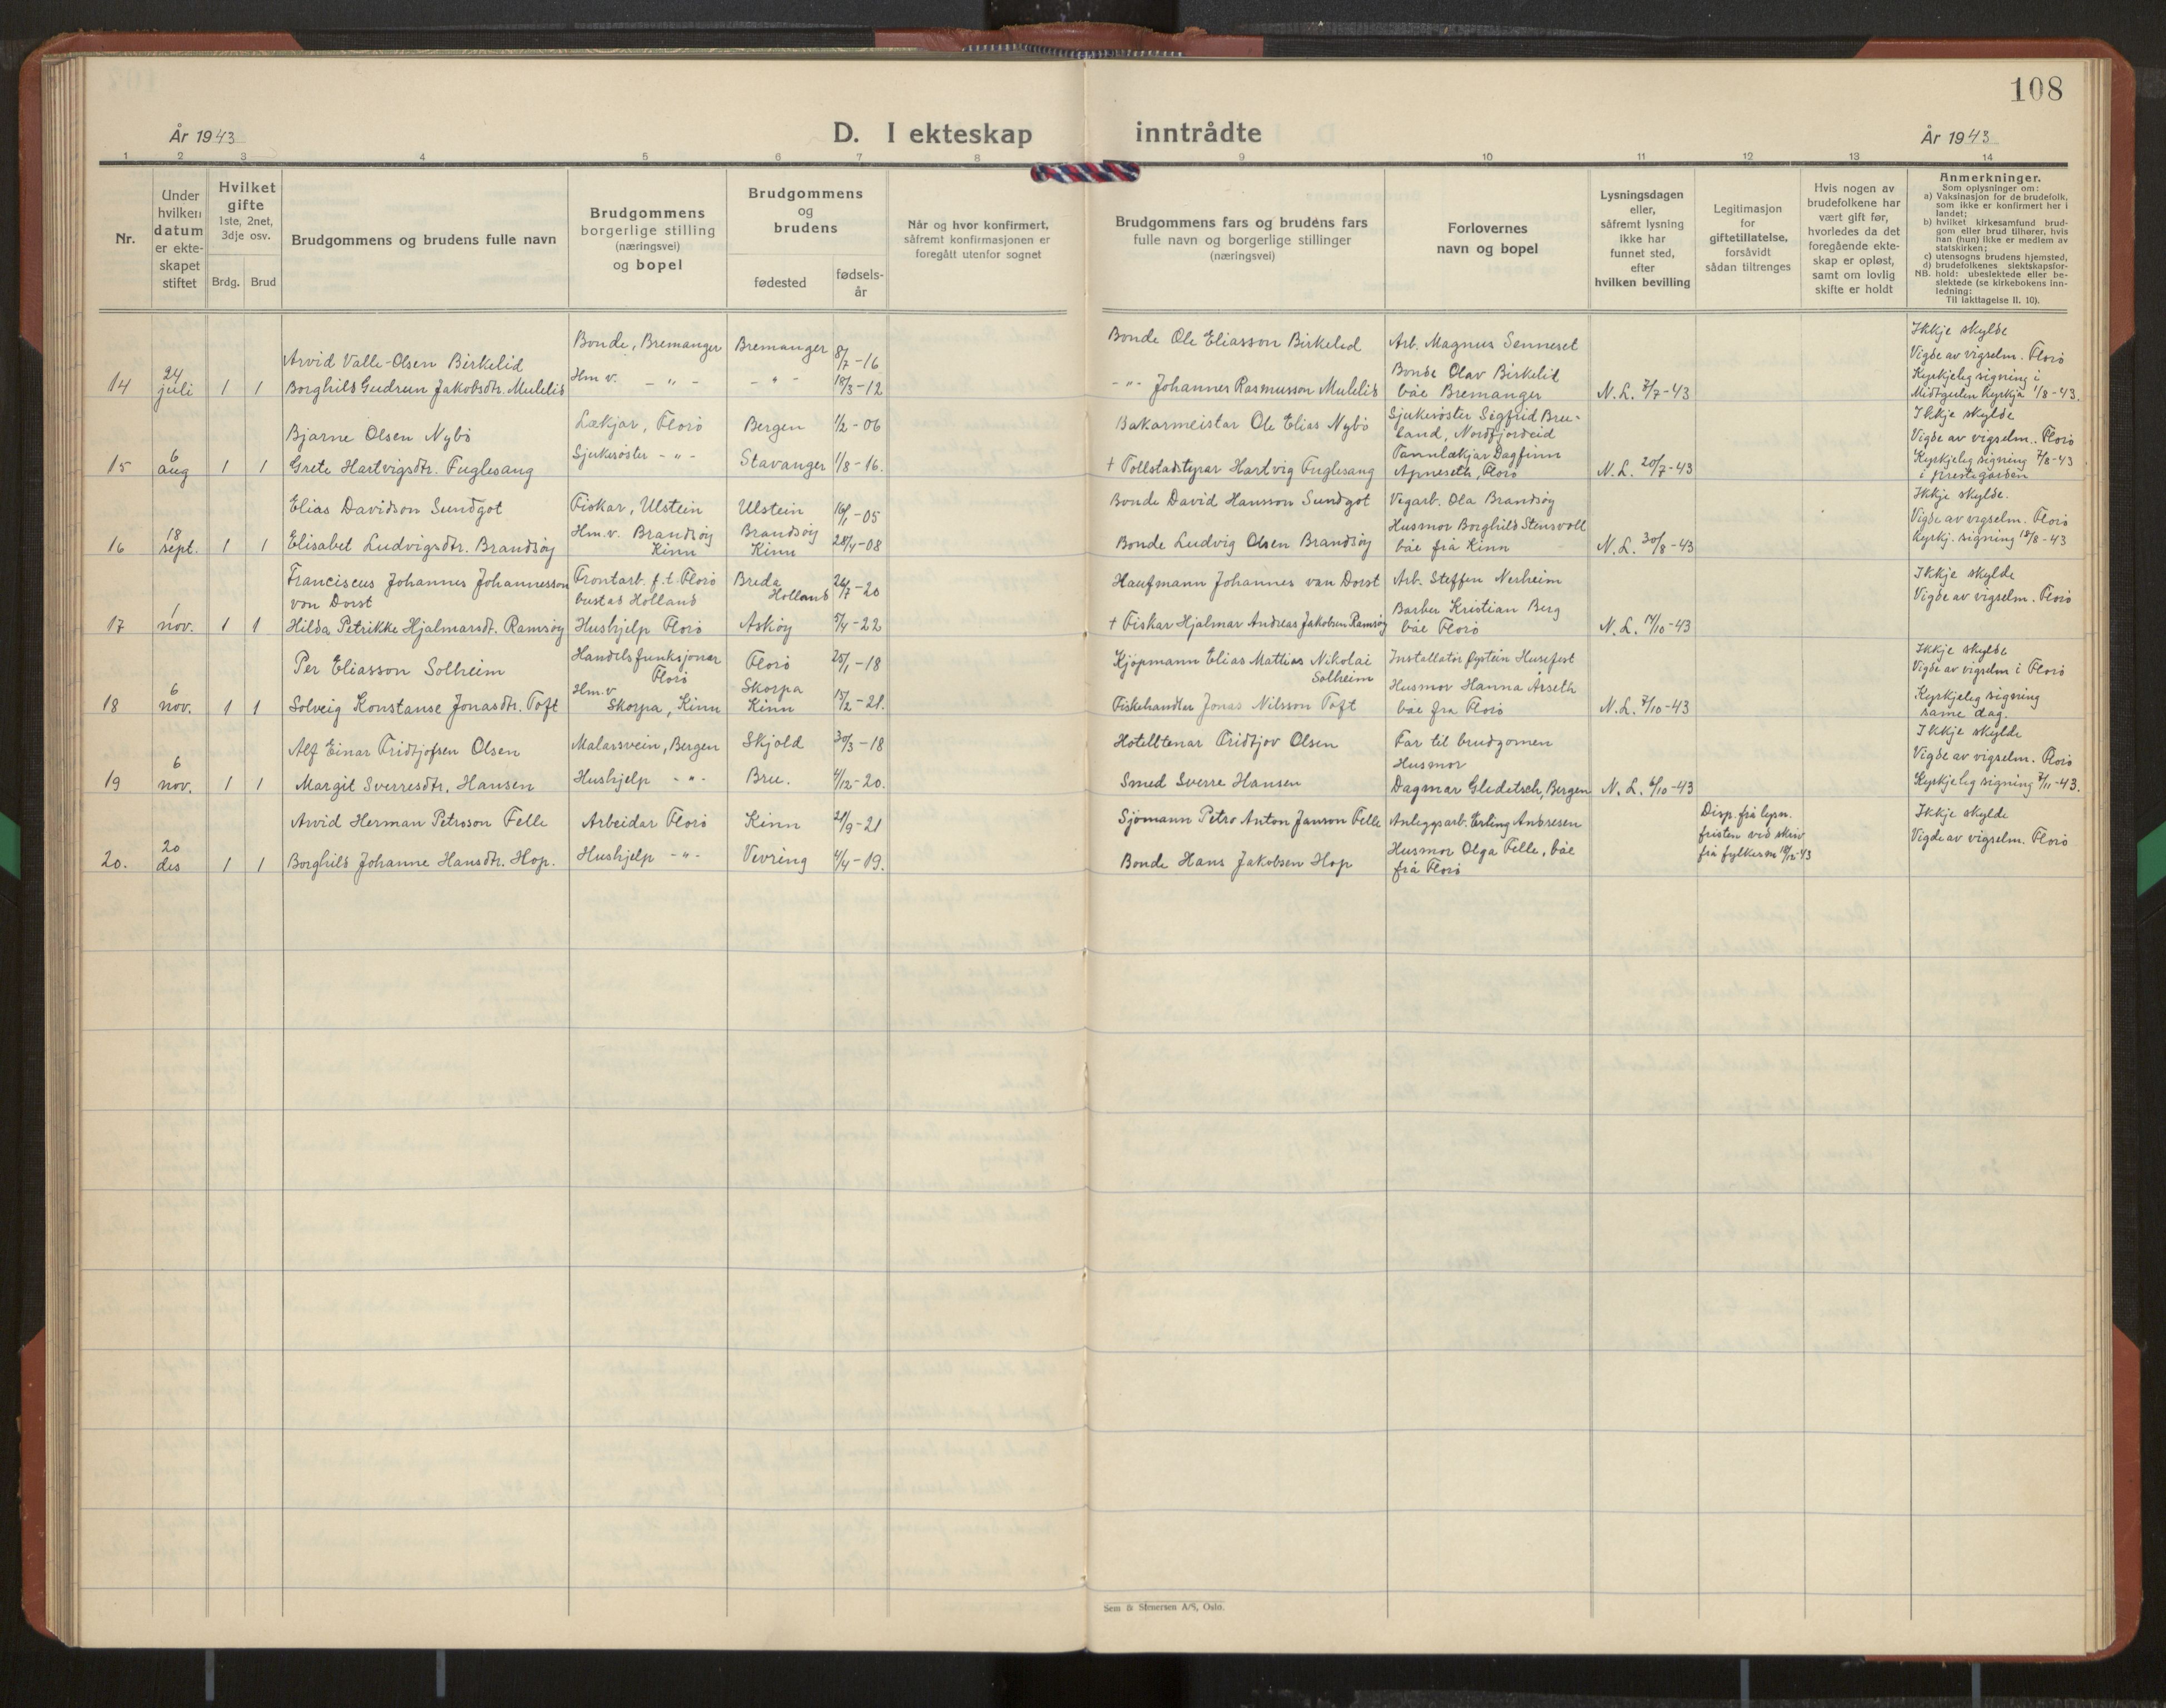 108
År 1943
D. I ekteskap inntrådte
År 1943
1 2 3 4 5 6 7 8 9 10 11 12 13 14
Nr.
Under hvilken datum er ekteskapet stiftet
Hvilket gifte
1ste, 2net, 3dje osv.
Brdg. Brud
Brudgommens og brudens fulle navn
Brudgommens borgerlige stilling (næringsvei) og bopel
Brudgommens og brudens
fødested
fødsels-år
Når og hvor konfirmert, såfremt konfirmasjonen er foregått utenfor sognet
Brudgommens fars og brudens fars fulle navn og borgerlige stillinger (næringsvei)
Forlovernes navn og bopel
Lysningsdagen eller, såfremt lysning ikke har funnet sted, efter hvilken bevilling
Legitimasjon for giftetillatelse, forsåvidt sådan tiltrenges
Hvis nogen av brudefolkene har vært gift før, hvorledes da det foregående ekteskap er opløst, samt om lovlig skifte er holdt
Anmerkninger.
Som oplysninger om:
a) Vaksinasjon for de brudefolk, som ikke er konfirmert her i landet;
b) hvilket kirkesamfund brudgom eller brud tilhører, hvis han (hun) ikke er medlem av statskirken;
c) utensogns brudens hjemsted,
d) brudefolkenes slektskapsforhold: ubeslektede eller beslektede (se kirkebokens innledning:
NB. Til iakttagelse II. 10).
14 24 juli 1 1
Arvid Valle-Olsen Birkelid
Borghild Gudrun Jakobsdtr. Mulelid
Bonde, Bremanger
Hm. v. - " -
Bremanger 8/7-16
- " - 18/3-12
Bonde Ole Eliasson Birkelid
- " - Johannes Rasmusson Mulelid
Arb. Magnus Senneset
Bonde Olav Birkelid
båe Bremanger
N. L. 7/7-43
Ikkje skylde
Vigde av vigselm. Florø
Kyrkjeleg signing i
Midtgulen kyrkja 1/8-43.
15 6 aug 1 1
Bjarne Olsen Nybø
Grete Hartvigsdtr. Fuglesang
Lækjar, Florø
Sjukesøster - " -
Bergen 1/2-06
Stavanger 1/8-16.
Bakarmeistar Ole Elias Nybø
+ Tollstadstyrar Hartvig Fuglesang
Sjukesøster Sigfrid Bru-
land, Nordfjordeid
Tannlækjar Dagfinn
Apneseth, Florø
N. L. 20/7-43
Ikkje skylde
Vigde av vigselm. Florø
Kyrkjeleg signing 7/8-43
i prestegarden
16 18 sept. 1 1
Elias Davidson Sundgot
Elisabet Ludvigsdtr. Brandsøy
Fiskar, Ulstein
Hm. v. Brandsøy
Kinn
Ulstein 16/1-05
Brandsøy
Kinn 28/4-08
Bonde David Hansson Sundgot
Bonde Ludvig Olsen Brandsøy
Vegarb. Ola Brandsøy
Husmor Borghild Stensvoll
båe frå Kinn
N. L. 30/8-43
Ikkje skylde.
Vigde av vigselm. Florø
Kyrkj. signing 18/8-43
17 1 nov. 1 1
Franciscus Johannes Johannesson
von Dorst
Hilda Petrikke Hjalmarsdt. Ramsøy
Frontarb. f. t. Florø
bustad Holland
Hushjelp Florø
Breda
Holland 24/7-20
Askøy 5/4-22
Haufmann Johannes van Dorst
+ Fiskar Hjalmar Andreas Jakobsen Ramsøy
Arb. Steffen Nerheim
Barber Kristian Berg
båe Florø
N. L. 14/10-43
Ikkje skylde
Vigde av vigselm. Florø
18 6 nov. 1 1
Per Eliasson Solheim
Solveig Konstanse Jonasdtr. Toft
Handelsfunksjonær
Florø
Hm. v
Skorpa, Kinn
Florø 25/1-18
Skorpa
Kinn 15/2-21.
Kjøpmann Elias Mattias Nikolai
Solheim
Fiskehandler Jonas Nilsson Toft
Installatør Øystein Husefest
Husmor Hanna Årseth
båe fra Florø
N. L. 7/10-43
Ikkje skylde
Vigde av vigselm i Florø
Kyrkjeleg signing
same dag.
19 6 nov. 1 1
Alf Einar Fridtjofsen Olsen
Margit Sverresdtr. Hansen
Malarsvein, Bergen
Hushjelp - " -
Skjold 30/3-18
Bru. 4/12-20.
Hotelltenar Fridtjov Olsen
Smed Sverre Hansen
Far til brudgomen
Husmor
Dagmar Gleditsch, Bergen
N. L. 6/10-43
Ikkje skylde
Vigde av vigselm. Florø
Kyrkjeleg signing 7/11-43.
20. 20 des 1 1
Arvid Herman Petroson Felle
Borghild Johanne Hansdtr. Hop.
Arbeidar Florø
Hushjelp - " -
Kinn 21/9-21
Vevring 4/4-19.
Sjømann Petro Anton Janson Felle
Bonde Hans Jakobsen Hop
Anleggsarb. Erling Andresen
Husmor Olga Felle, båe
frå Florø
Disp. frå lysn.
fristen ved skriv
frå fylkesm 18/12-43
Ikkje skylde
Vigde av vigselm. Florø
Sem & Stenersen A/S, Oslo.